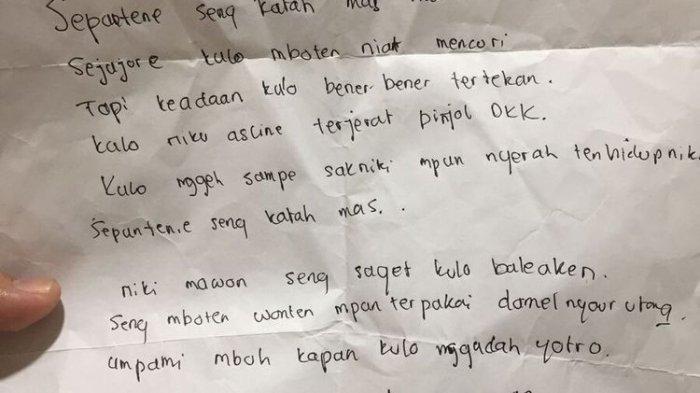 Sepuntene seng katah mas
Sejujore kulo mboten niat mencori
Tapi keadaan kulo bener-bener tertekan.
kalo niku asline terjerat pinjol OKK.
Kulo nggeh sampe sakniki mpun nyerah ten hidup niki
Sepunten.e seng katah mas. .
niki mawon seng saget kulo baleaken.
Seng mboten wonten mpan terpakai damel nyaur utang.
umpami mboh kapan kulo nggadah yotro.